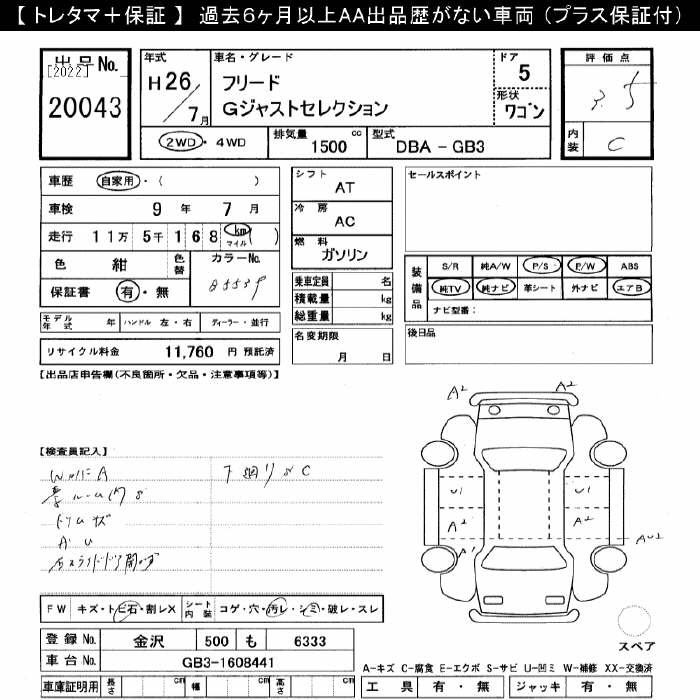 【 トレタマ＋保証 】 過去6ヶ月以上AA出品歴がない車両（プラス保証付）
出品No.
[2022]
20043
年式
H26/7月
車名・グレード
フリード
Gジャストセレクション
ドア
5
形状
ワゴン
2WD・4WD
排気量
1500 cc
型式
DBA - GB3
評価点
3.5
内装
C
車歴 自家用・( )
車検 9年 7月
走行 11万 5千 168 km マイル ( )
色 紺 色替 カラーNo.
B553P
保証書 有・無
モデル年式 年 ハンドル 左・右 ディーラー・並行
リサイクル料金 11,760 円 預託済
シフト AT
冷房 AC
燃料 ガソリン
乗車定員 名
積載量 kg
総重量 kg
名変期限
月 日
セールスポイント
装備品
S/R 純A/W P/S P/W ABS
純TV 純ナビ 革シート 外ナビ エアB
ナビ型番：
後日品
【出品店申告欄(不良箇所・欠品・注意事項等)】
【検査員記入】
A U
FW キズ・トビ石・割レX シート内装 コゲ・穴・汚レ・シミ・破レ・スレ
登録No. 金沢 500 も 6333
車台No. GB3-1608441
車庫証明用 長さ cm 幅 cm 高さ cm
A2 A2
U1 U1
A2 A2
A1
AU2
スペア
A-キズ C-腐食 E-エクボ S-サビ U-凹ミ W-補修 XX-交換済
工具 有・無 ジャッキ 有・無